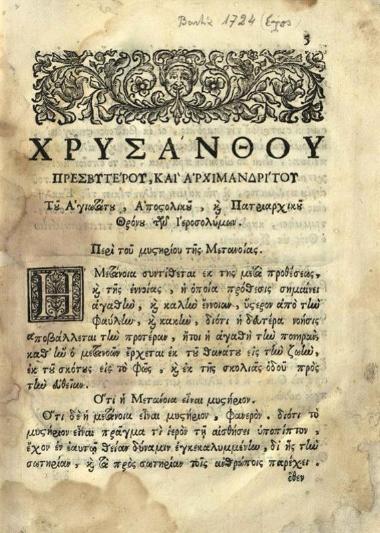 1724
5
ΧΡΥΣΑΝΘΟΥ
ΠΡΕΣΒΥΤΕΡΟΥ, ΚΑΙ ΑΡΧΙΜΑΝΔΡΙΤΟΥ
Τοῦ Ἁγιωτάτου, Ἀποστολικοῦ, καὶ Πατριαρχικοῦ
Θρόνου τῶν Ἱεροσολύμων.
Περὶ τοῦ μυστηρίου τῆς Μετανοίας.
Η Μετάνοια συντίθεται ἐκ τῆς μετὰ προθέσεως,
καὶ τῆς ἐννοίας, ἡ ὁποία πρόθεσις σημαίνει
ἀγαθὴν, καὶ καλὴν ἔννοιαν, ὕστερον ἀπὸ τὴν
φαύλην, καὶ κακὴν, διότι ἡ δευτέρα νόησις
ἀποβάλλεται τὴν προτέραν, ἤτοι ἡ ἀγαθὴ τὴν πονηρὰν,
καθ' ἣν ὁ μετανοῶν ἔρχεται ἐκ τοῦ θανάτου εἰς τὴν ζωὴν,
ἐκ τοῦ σκότους εἰς τὸ φῶς, καὶ ἐκ τῆς σκολιᾶς ὁδοῦ πρὸς
τὴν εὐθεῖαν.
Ὅτι ἡ Μετάνοια εἶναι μυστήριον.
Ὅτι δὲ ἡ μετάνοια εἶναι μυστήριον, φανερὸν. διότι τὸ
μυστήριον εἶναι πρᾶγμα τὶ ἱερὸν τῇ αἰσθήσει ὑποπίπτον,
ἔχον ἐν ἑαυτῷ θείαν δύναμιν ἐγκεκαλυμμένην, δι' ἧς τὴν
σωτηρίαν, καὶ τὰ πρὸς σωτηρίαν τοῖς ἀνθρώποις παρέχει.
ὅθεν